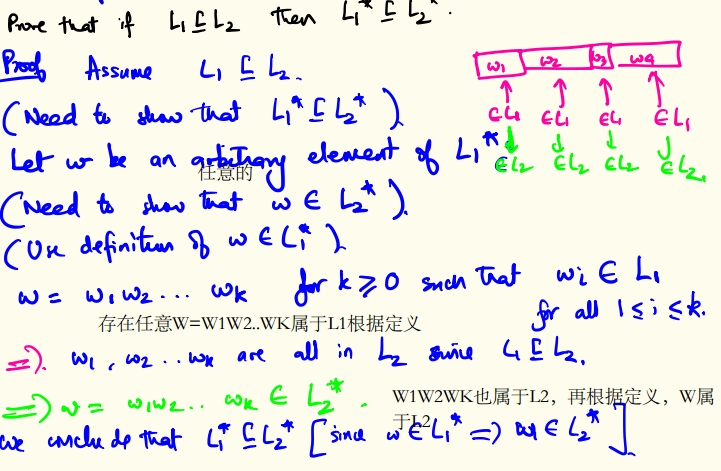 Prove that if L₁ ⊆ L₂ then L₁* ⊆ L₂*.
Proof Assume L₁ ⊆ L₂.
w₁ w₂ w₃ w₄
(Need to show that L₁* ⊆ L₂*)
∈L₁ ∈L₁ ∈L₁ ∈L₁
Let w be an arbitrary element of L₁*
∈L₂ ∈L₂ ∈L₂ ∈L₂
任意的
(Need to show that w ∈ L₂*).
(Use definition of w ∈ L₁*)
w = w₁ w₂ ... wₖ for k ≥ 0 such that wᵢ ∈ L₁
for all 1 ≤ i ≤ k.
存在任意W=W1W2..WK属于L1根据定义
⇒). w₁, w₂ .. wₖ are all in L₂ since L₁ ⊆ L₂.
⇒) w = w₁w₂.. wₖ ∈ L₂*.
W1W2WK也属于L2，再根据定义，W属
于L2
We conclude that L₁* ⊆ L₂* [since w ∈ L₁* ⇒ w ∈ L₂*].